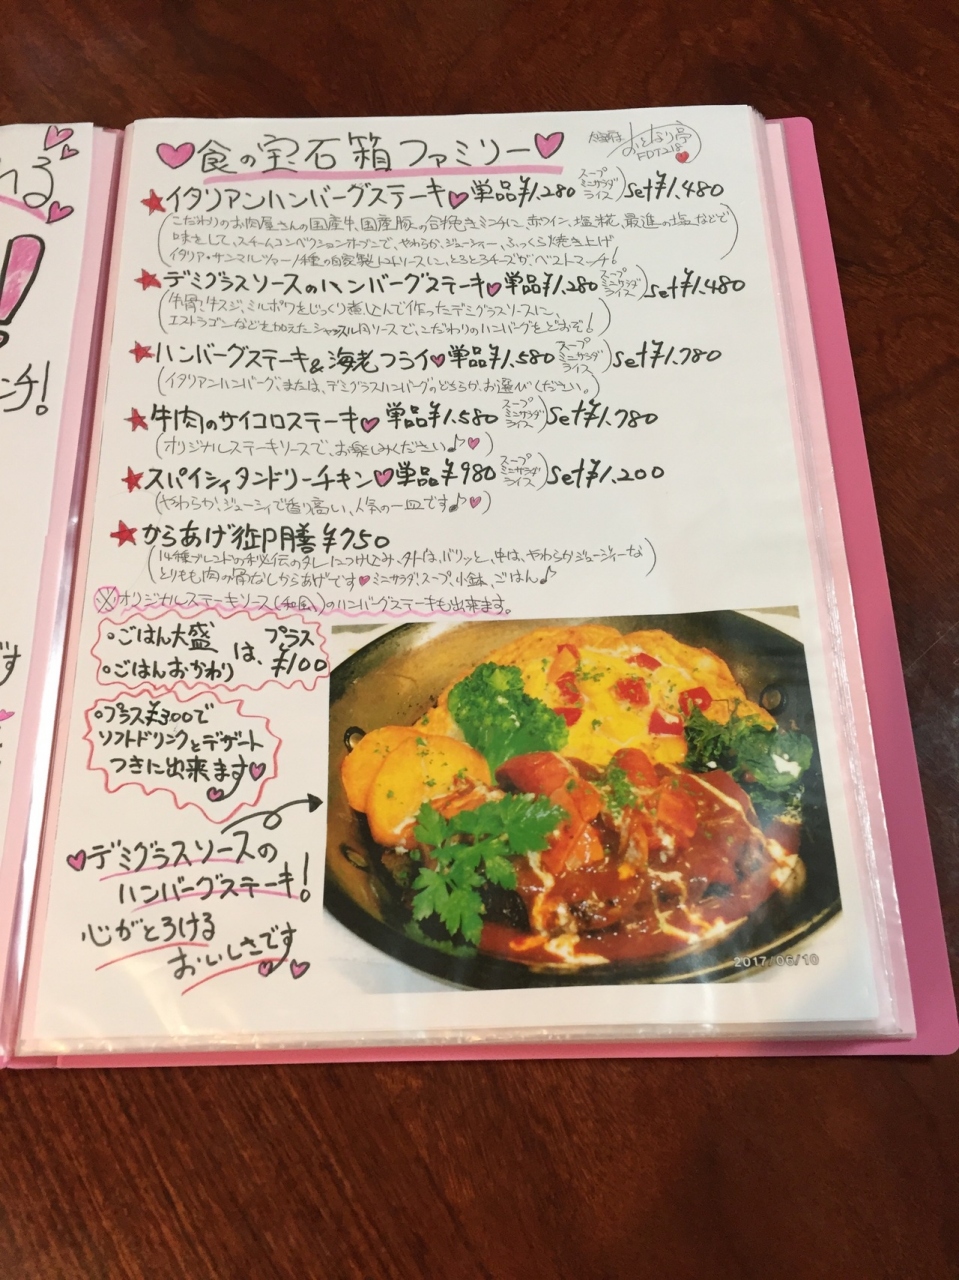 食の宝石箱ファミリー
★イタリアンハンバーグステーキ♥単品¥1,280 スープ ミニサラダ ライス)set¥1,480
(こだわりのお肉屋さんの国産牛、国産豚の合挽きミンチに、赤ワイン、塩糀、最進の塩などで
味をして、スチームコンベクションオーブンで、やわらか、ジューシィー、ふっくら焼き上げ
イタリア・サンマルツァーノ種の自家製トマトソースに、とろとろチーズがベストマッチ!)
★デミグラスソースのハンバーグステーキ♥単品¥1,280 スープ ミニサラダ ライス)set¥1,480
(牛骨、牛スジ、ミルポワをじっくり煮込んで作ったデミグラスソースに、
エストラゴンなどを加えたシャッスル肉ソースで、こだわりのハンバーグをどおぞ!)
★ハンバーグステーキ&海老フライ♥単品¥1,580 スープ ミニサラダ ライス)set¥1,780
(イタリアンハンバーグ、または、デミグラスハンバーグのどちらか、お選びください。)
★牛肉のサイコロステーキ♥単品¥1,580 スープ ミニサラダ ライス)set¥1,780
(オリジナルステーキソースで、お楽しみください♪♥)
★スパイシィタンドリーチキン♥単品¥980 スープ ミニサラダ ライス)set¥1,200
(やわらか、ジューシィで香り高い、人気の一皿です♪♥)
★からあげ御膳¥750
(14種ブレンドの秘伝のタレにつけ込み、外は、パリッと、中は、やわらかジューシィーな
とりもも肉の骨なしからあげです♥ミニサラダ、スープ、小鉢、ごはん♪)
※オリジナルステーキソース(和風)のハンバーグステーキも出来ます。
。ごはん大盛
。ごはんおかわり
は、プラス
¥100
。プラス¥300で
ソフトドリンクとデザート
つきに出来ます♥
♥デミグラスソースの
ハンバーグステーキ!
心がとろける
おいしさです
2017/06/10
チ!